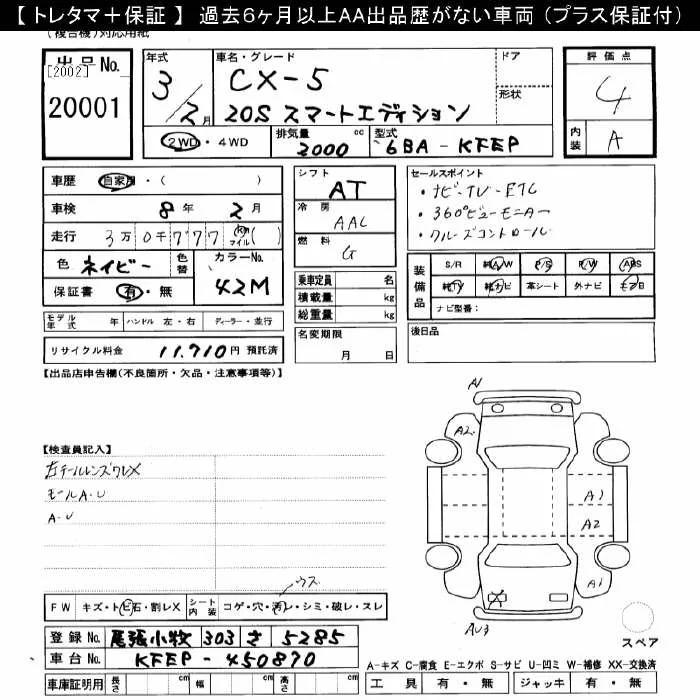 【 トレタマ＋保証 】 過去6ヶ月以上AA出品歴がない車両（プラス保証付）
(複合機)対応用紙
出品No.
[2002]
20001
年式
3/2月
車名・グレード
CX-5
20S スマートエディション
ドア
形状
評価点
4
内装
A
2WD・4WD
排気量 2000 cc
型式 6BA - KFEP
車歴 自家用・( )
車検 8年 2月
走行 3万0千777 km マイル ( )
色 ネイビー 色替
カラーNo. 42M
保証書 有・無
シフト
AT
冷房
AAC
燃料
G
乗車定員 名
積載量 kg
総重量 kg
セールスポイント
・ナビ・TV・ETC
・360°ビューモニター
・クルーズコントロール
装備品
S/R 純A/W P/S P/W ABS
純TV 純ナビ 革シート 外ナビ エアB
ナビ型番：
モデル年式 年 ハンドル 左・右 ディーラー・並行
リサイクル料金 11,710円 預託済
名変期限
月 日
後日品
【出品店申告欄(不良箇所・欠品・注意事項等)】
【検査員記入】
左テールレンズワレX
モールA・U
A・U
A1
A2
A1
A2
A1
AU3
X
ウス
FW キズ・トビ石・割レX
シート内装 コゲ・穴・汚レ・シミ・破レ・スレ
スペア
登録No. 尾張小牧 303 さ 5285
車台No. KFEP - 450870
車庫証明用 長さ cm 幅 cm 高さ cm
A-キズ C-腐食 E-エクボ S-サビ U-凹ミ W-補修 XX-交換済
工具 有・無 ジャッキ 有・無